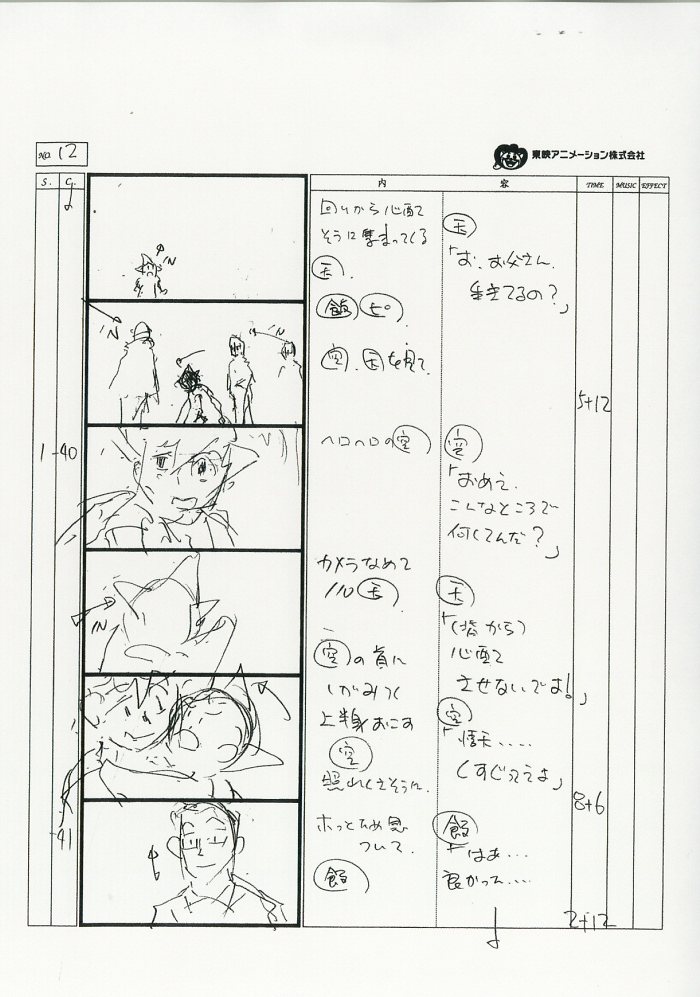 NO. 12
東映アニメーション株式会社
S. C. 内容 TIME MUSIC EFFECT
回りから心配
そうに集まってくる
天
天
「お、お父さん、
生きてるの?」
IN
飯 ピ
IN
IN
空、天を見て、
5+12
1 -40
ヘロヘロの空
空
「おめえ、
こんなところで
何してんだ?」
カメラなめて
IN 天
IN
天
「(皆から)
心配
させないでよ!」
空の首に
しがみつく
上半身おこす
空
「悟天‥‥
くすぐってえよ」
空
照れくさそうに、
8+6
-41
ホッとため息
ついて、
飯
飯
「はあ…
良かった…
2+12